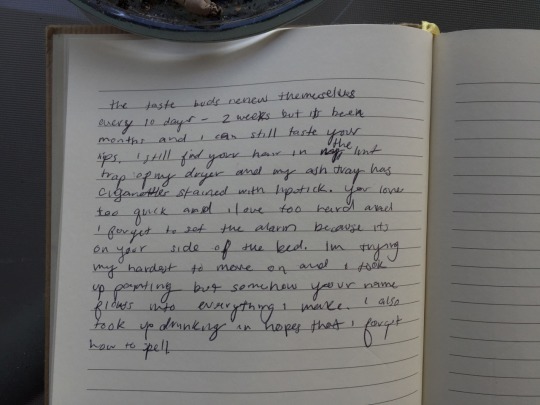 the taste buds renew themeselves
every 10 days - 2 weeks but its been
months and i can still taste your
lips. i still find your hair in the lint
trap of my dryer and my ash tray has
cigarettes stained with lipstick. you love
too quick and i love too hard and
i forget to set the alarm because its
on your side of the bed. Im trying
my hardest to move on and i took
up painting but somehow your name
flows into everything i make. i also
took up drinking in hopes that i forget
how to spell